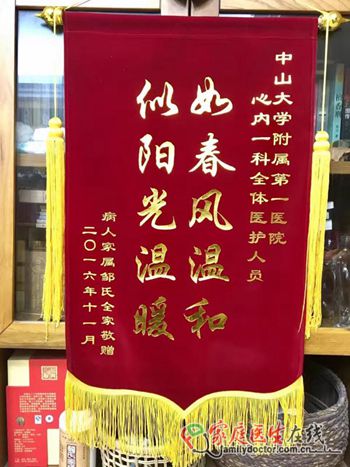 中山大学附属第一医院
心内一科全体医护人员
如春风温和
似阳光温暖
病人家属邹氏全家敬赠
二〇一六年十一月
家庭医生在线
familydoctor.com.cn